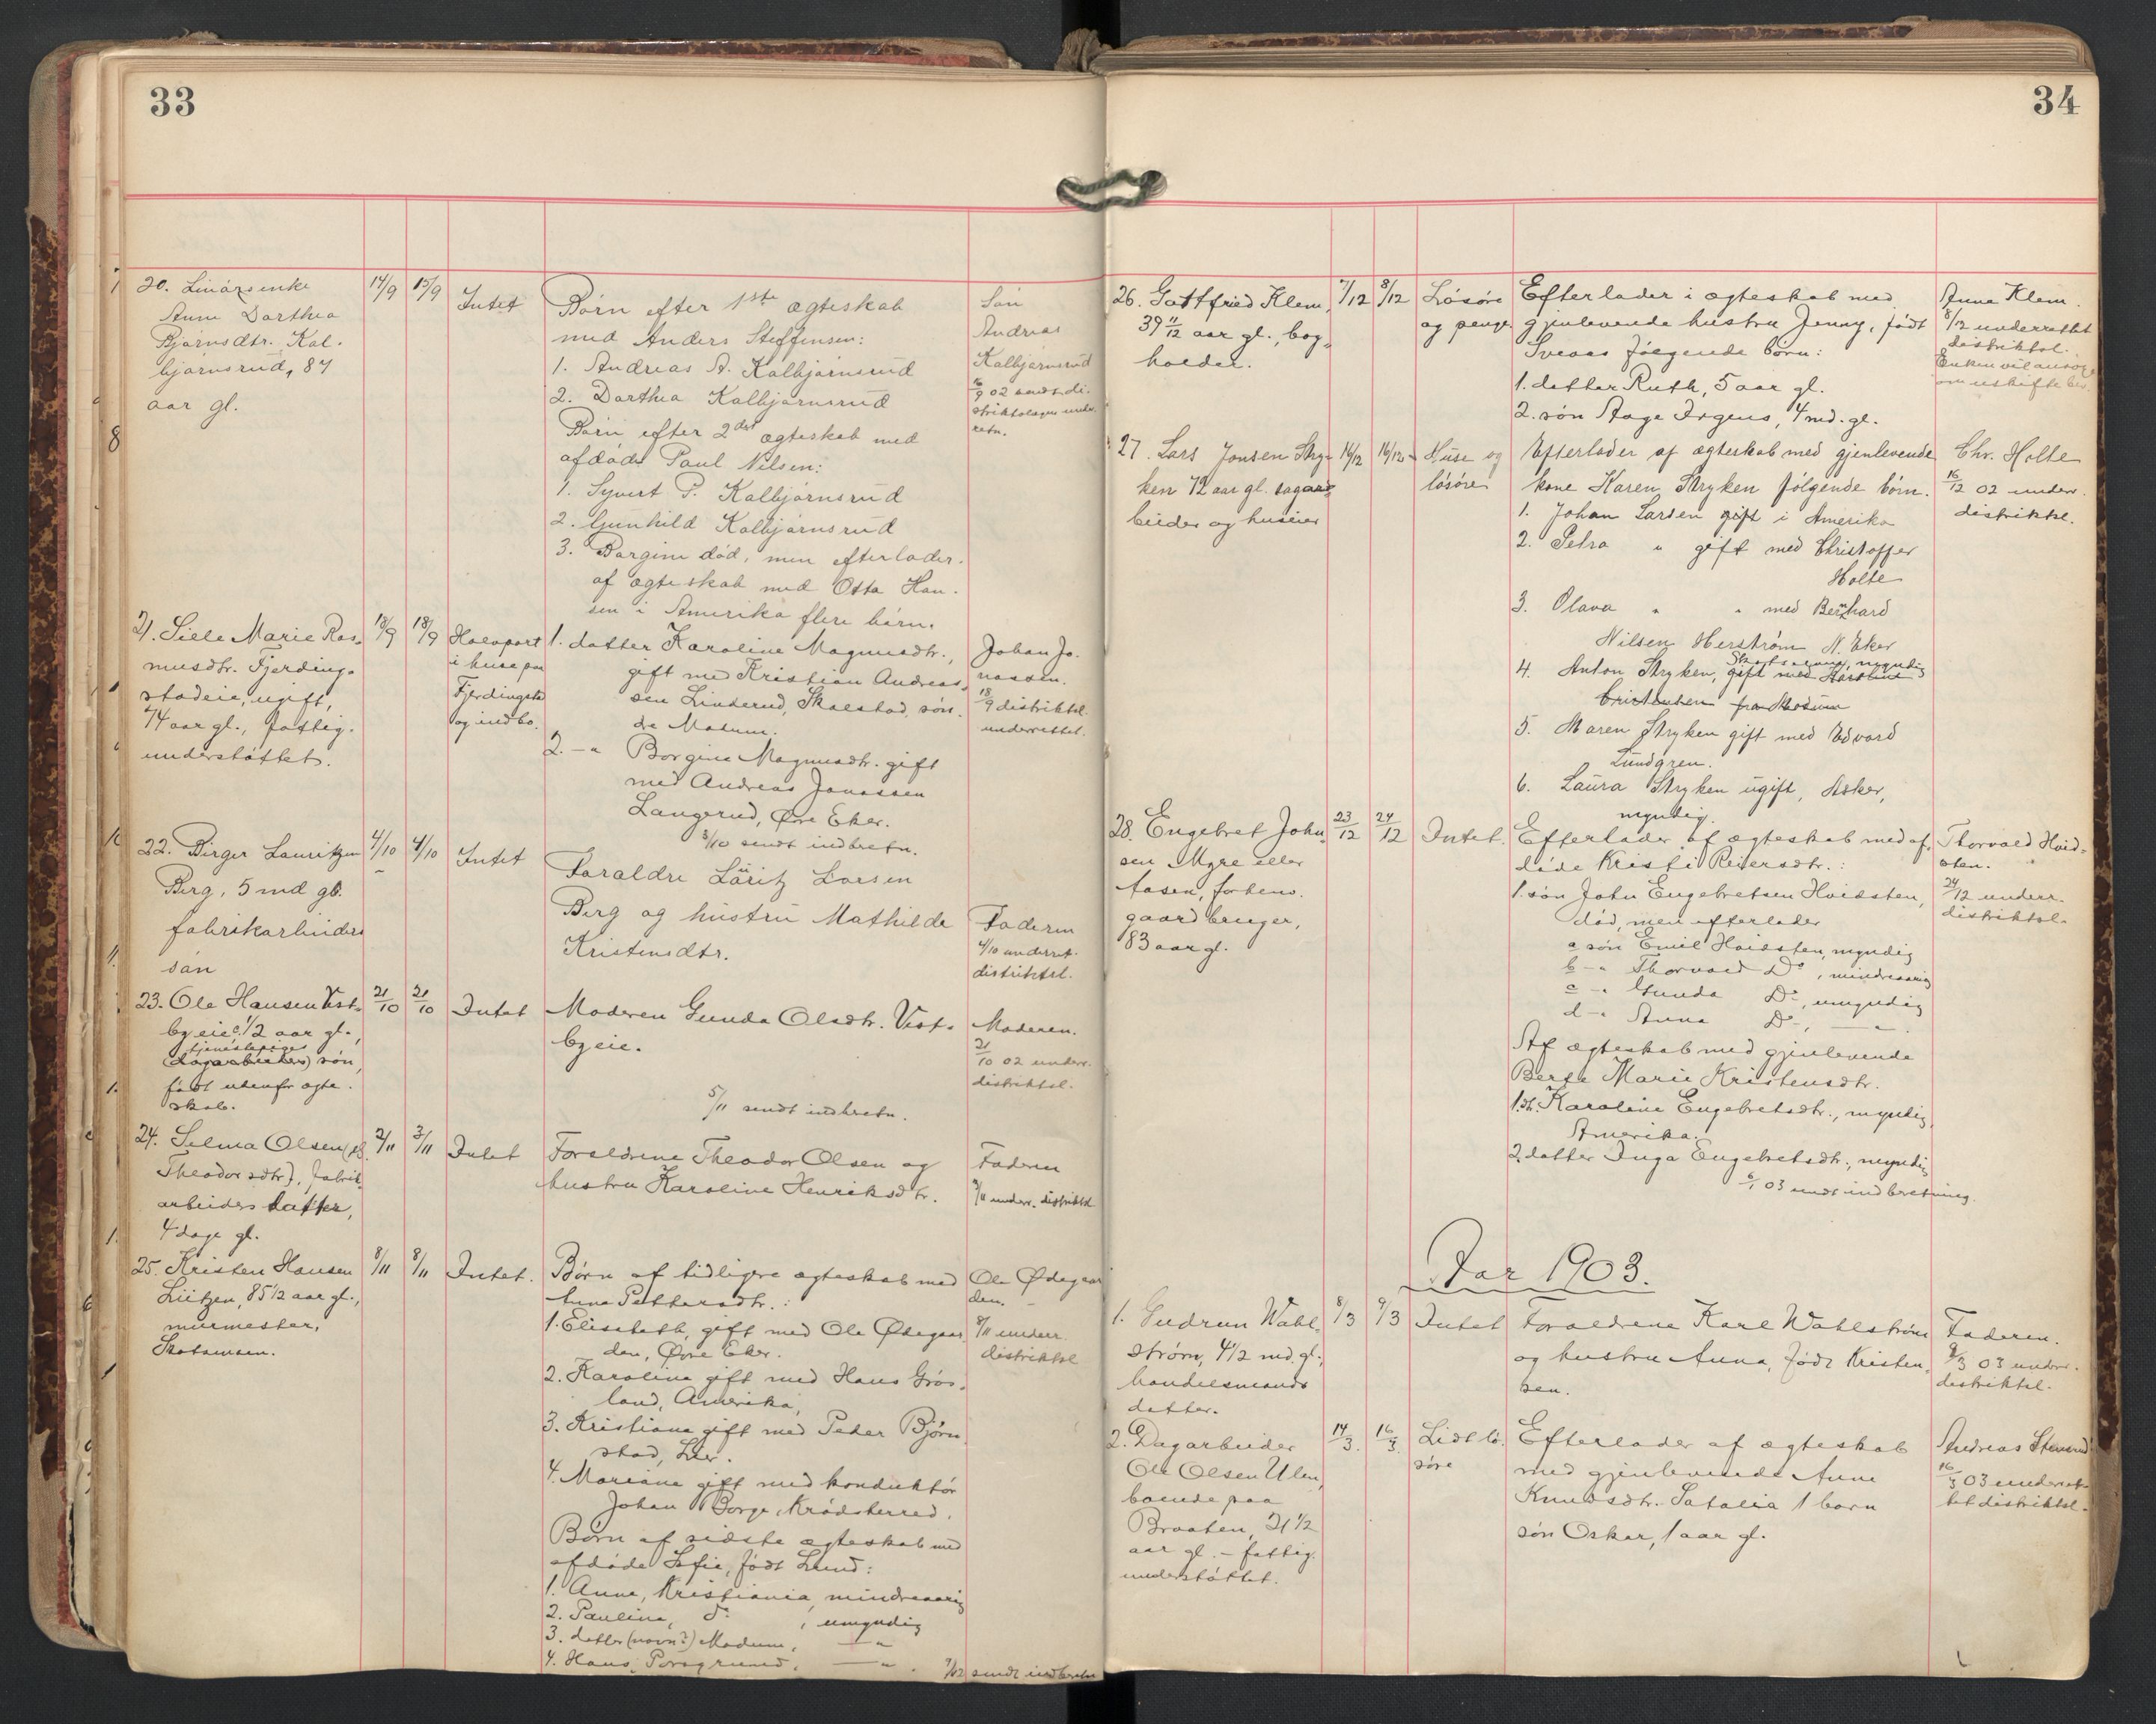 33
20. Anne Dorthea
Bjørnsdtr. Kal-
bjørnsrud, 87
aar gl.
14/9
15/9
Intet
Børn efter 1ste ægteskab
med Anders Steffensen:
1. Andreas A. Kalbjørnsrud
2. Dorthea Kalbjørnsrud
Børn efter 2det ægteskab med
afdøde Paul Nilsen:
1. Syvert P. Kalbjørnsrud
2. Gunhild Kalbjørnsrud
3. Borgine død, men efterlader
af ægteskab med Otto Han-
sen i Amerika flere børn.
Søn
Andreas
Kalbjørnsrud
16/9 02 sendt di-
striktslagen under-
retn.
21. Siele Marie Ras-
musdtr. Fjerding-
stadeie, ugift,
74 aar gl., fattig-
understøttet.
18/9
18/9
Halvpart
i huse paa
Fjerdingsta
og indbo.
1. datter Karoline Magnusdtr.,
gift med Kristian Andreas-
sen Linderud, Skalstad, søn-
dre Modum.
2. -"- Borgine Magnusdtr. gift
med Andreas Jonassen
Langerud, Øvre Eker.
3/10 sendt indbretn.
Johan Jo-
nassen.
18/9 distriktsl.
underrettet.
22. Birger Lauritzen
Berg, 5 md gl.
fabrikarbeiders
søn
4/10
4/10
Intet
Forældre Lauritz Larsen
Berg og hustru Mathilde
Kristensdtr.
Faderen
4/10 underret.
distriktsl.
23. Ole Hansen Vest-
byeie 1/2 aar gl.,
tjenestepiges
dagarbeiders søn,
født udenfr ægte-
skab.
21/10
21/10
Intet
Moderen Gunda Olsdtr. Vest-
byeie.
5/11 sendt indbretn.
Moderen.
21/10 02 underr.
distriktsl.
24. Selma Olsen
Theodorsdtr), fabrik-
arbeiders datter,
4 dage gl.
2/11
3/11
Intet
Forældrene Theodor Olsen og
hustru Karoline Henriksdtr.
Faderen
3/11 underr. distriktsl
25. Kristen Hansen
Lützen, 85 1/2 aar gl.,
murmester,
Skotsmoen.
8/11
8/11
Intet.
Børn af tidligere ægteskab med
Anne Pettersdtr.:
1. Elisabeth, gift med Ole Ødegaar
den, Øvre Eker.
2. Karoline gift med Hans Grøs-
land, Amerika,
3. Kristiane gift med Peder Bjørn-
stad, Lier.
4. Mariane gift med konduktør
Johan Borge, Krødsherred.
Børn af sidste ægteskab med
afdøde Sofie, født Lund:
1. Anne, Kristiania, mindreaarig
2. Pauline, do , umyndig
3. datter (navn?) Modum, -"-
4. Hans, Porsgrund, -"-
sendt indbretn
Ole Ødegaar
den.
8/11 underr.
distriktsl
34
26. Gottfried Klem,
39 11/12 aar gl., bog-
holder.
7/12
8/12
Løsøre
og penge
Efterlader i ægteskab med
gjenlevende hustru Jenny, født
Sveaas følgende børn:
1. datter Ruth, 5 aar gl.
2. søn Aage Irgens, 4 md. gl.
Anna Klem.
8/12 underrettet
distriktsl.
Enken vil ansøge
om uskifte bev.
27. Lars Jonsen Stry-
ken 72 aar gl. sagar-
beider og huseier
14/12
16/12
Huse og
løsøre
Efterlader af ægteskab med gjenlevende
kone Karen Stryken følgende børn.
1. Johan Larsen gift i Amerika
2. Petra " gift med Christoffer
Holte
3. Olava " " med Bernhard
Nilsen Herstrøm N. Eker
4. Anton Stryken, gift med
Skotsmoen, myndig
fra Modum
5. Maren Stryken gift med Edvard
Lundgren.
6. Laura Stryken ugift, Asker,
myndig.
Chr. Holte
16/12 02 underr.
distriktsl.
28. Engebret John-
sen Myre eller
Aasen, forhenv.
gaardbruger,
83 aar gl.
23/12
24/12
Intet.
Efterlader af ægteskab med af-
døde Kristi Reiersdtr.:
1. søn John Engebretsen Hvidsten,
død, men efterlader
a søn Emil Hvidsten, myndig
b -"- Thorvald Do , mindreaarig
c -"- Gunda Do, umyndig
d -"- Anna Do, -"-.
Af ægteskab med gjenlevende
Berte Marie Kristensdtr.
1. dt. Karoline Engebretsdtr., myndig,
Amerika.
2. datter Inga Engebretsdtr., myndig
6/1 03 sendt indberetning.
Thorvald Hvid-
sten.
24/12 underr.
distriktsl.
Aar 1903.
1. Gudrun Wahl-
strøm, 4 1/2 md. gl.,
handelsmands
datter.
8/3
9/3
Intet
Forældrene Karl Wahlstrøm
og hustru Anna, født Kristen-
sen.
Faderen.
9/3 03 underr.
distriktsl.
2. Dagarbeider
Ole Olsen Ulen,
boende paa
Braaten, 21 1/2
aar gl. - fattig-
understøttet.
14/3.
16/3.
Lidt lø-
søre
Efterlader af ægteskab
med gjenlevende Anne
Knudsdtr. Satalia 1 barn
søn Oskar, 1 aar gl.
Andreas Stensrud
16/3 03 underret-
tet distriktsl.